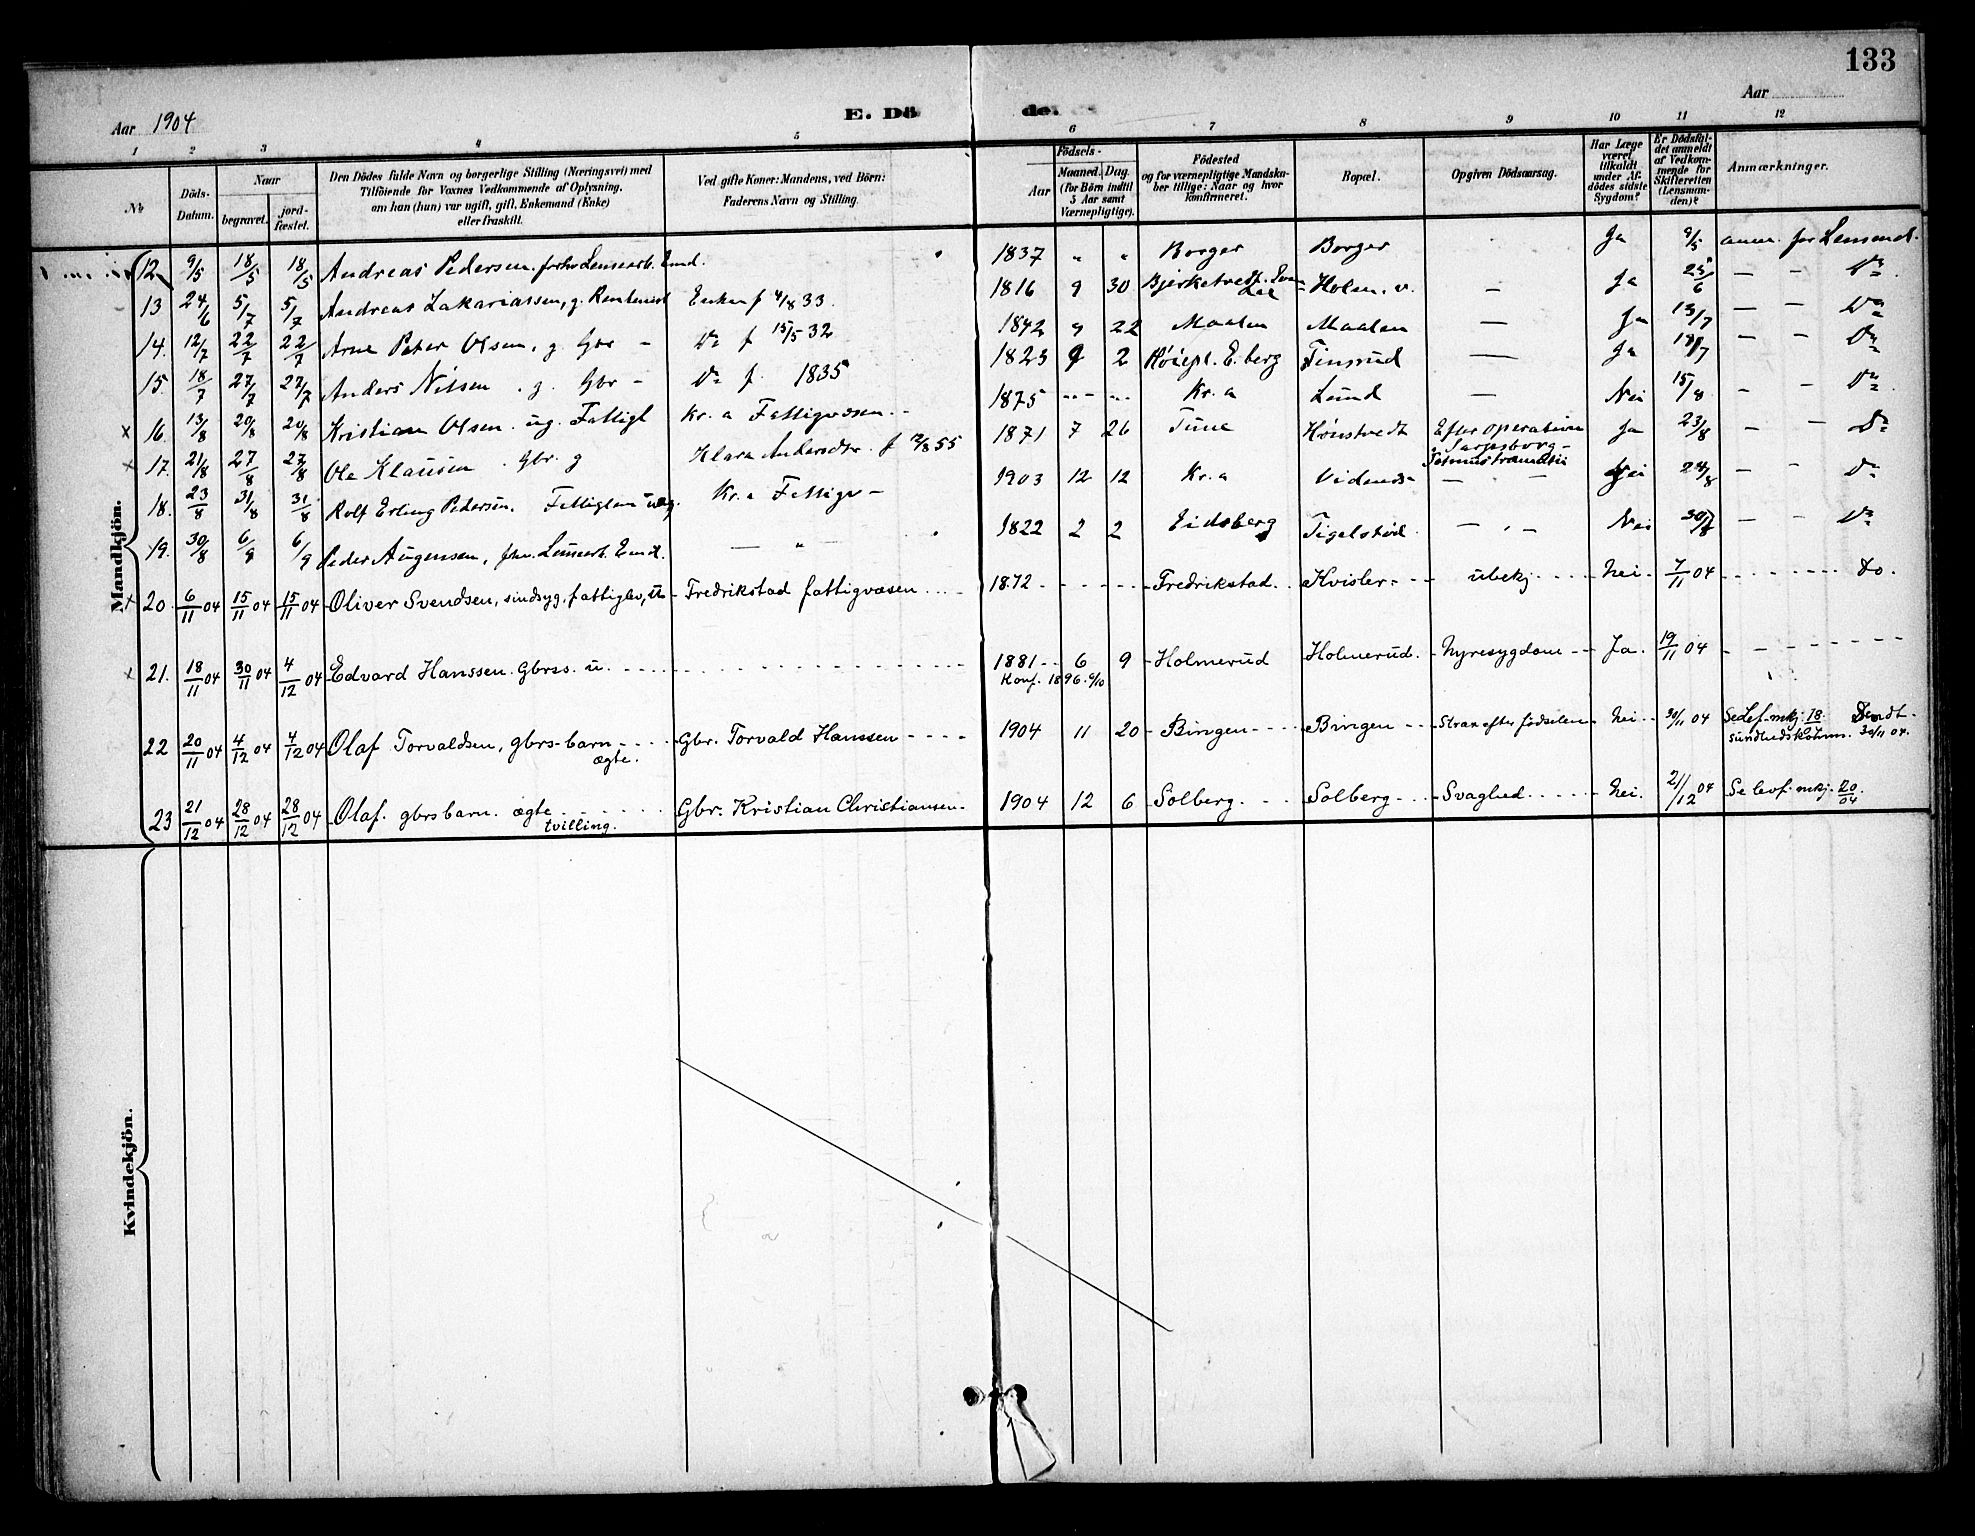 133
E. Döde.
Aar 1904
Aar
1 2 3 4 5 6 7 8 9 10 11 12
№
Döds-Datum.
Naar
begravet. jordfæstet.
Den Dödes fulde Navn og borgerlige Stilling (Næringsvei) med
Tilföiende for Voxnes Vedkommende af Oplysning,
om han (hun) var ugift, gift, Enkemand (Enke)
eller fraskilt.
Ved gifte Koner: Mandens, ved Börn:
Faderens Navn og Stilling.
Födsels-
Aar Maaned. Dag.
(for Börn indtil
5 Aar samt
Værnepligtige).
Födested
og for værnepligtige Mandskaber tillige: Naar og hvor
konfirmeret.
Bopæl.
Opgiven Dödsaarsag.
Har Læge
været
tilkaldt
under Afdödes sidste
Sygdom?
Er Dödsfaldet anmeldt
af Vedkommende for
Skifteretten
(Lensmanden)?
Anmærkninger.
Mandkjön.
12 9/5 18/5 18/5 Andreas Pedersen. 1837 " " Borger Borger Ja 9/5 anm. for Lensmd.
13 24/6 5/7 5/7 Andreas Zakariassen, g. Rentenist 1816 9 30 Holen. v. — Ja 25/6 — — Do
14. 12/7 22/7 22/7 Arne Peter Olsen, g. Gbr — Do f 15/5 32 1842 9 22 Maalen Maalen — Ja 13/7 — — Do
15. 18/7 27/7 27/7 Anders Nilsen . g. Gbr — Do f. 1835 1823 9 2 E. berg Finsrud — Ja 18/7 — — Do
x 16. 13/8 20/8 20/8 Kristian Olsen. ug. Fattigl Kr. a Fattigvæsen. 1875 Kr. a Lund — Nei 15/8 — — Do
x 17. 21/8 27/8 27/8 Ole Klausen . Gbr. g Klara Andersdtr. f 12/8 55 1871 7 26 Tune Hönstvedt Efter operation
Sarpsborg —
Ja 23/8 — — Do
18. 23/8 31/8 31/8 Rolf Erling Pedersen. Kr. a Fattigv — 1903 12 12 Kr. a — — Nei 24/8 — — Do
19. 30/8 6/9 6/9 Peder Augensen, — " — 1822 2 2 Eidsberg Tigelstad — — Nei — — Do
x 20. 6/11 04 15/11 04 15/11 04 Oliver Svendsen, sindsyg, fattiglem, u — Fredrikstad fattigvæsen 1872 Fredrikstad. Kvisler ubekj. Nei 7/11 04 Do.
x 21. 18/11 04 30/11 04 4/12 04 Edvard Hanssen. gbrss. u. 1881 6 9 Holmerud Holmerud. Nyresygdom Ja. 19/11 04
Konf. 1896. 4/10
22 20/11 04 4/12 04 4/12 04 Olaf Torvaldsen, gbrs-barn, ægte. Gbr. Torvald Hanssen 1904 11 20 Bingen Bingen Strax efter födselen Nei 30/11 04 Se Lef. mkj. 18. Sendt
sundhedskomm. 30/11 04.
23 21/12 04 28/12 04 28/12 04 Olaf. gbrsbarn. ægte
tvilling.
Gbr. Kristian Christiansen. 1904 12 6 Solberg. Solberg Svaghed Nei. 21/12 04 Se levf. mkj. 20/04.
Kvindekjön.